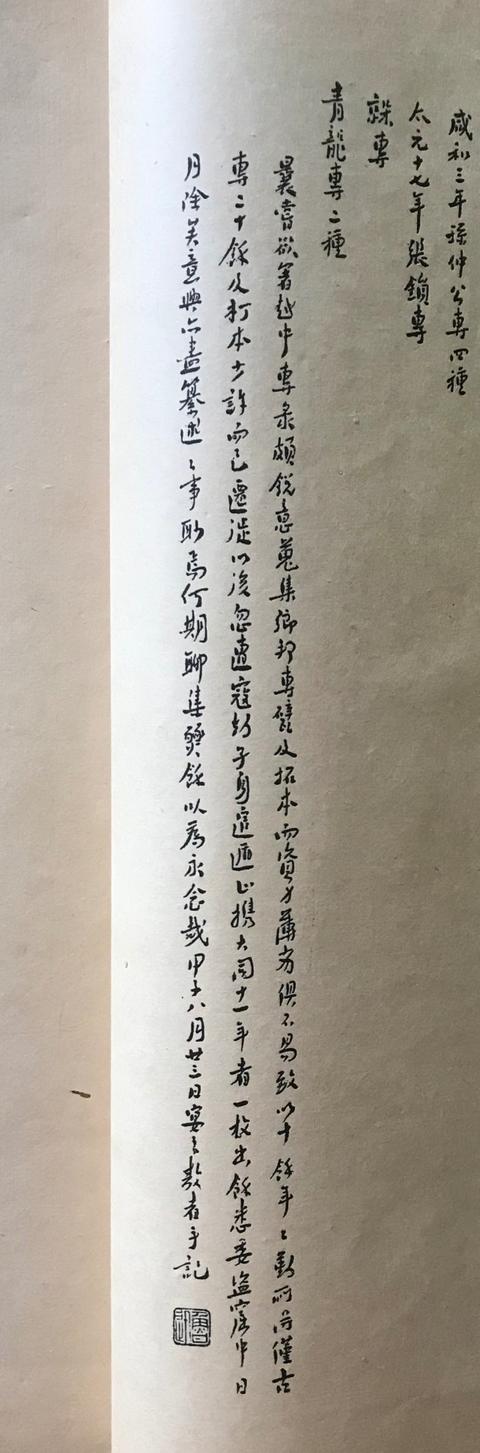 咸和三年孫仲公專四種
太元十七年張鎖專
專
青龍專二種
曩嘗欲箸越中專彔頗銳意蒐集鄉邦專甓及拓本而資力薄劣俱不易致以十餘年之勤所得僅古
專二十餘及打本少許而已遷徙以後忽遭寇劫孑身逭遁止携大同十一年者一枚出餘悉委盜窟中日
月除矣意興亦盡纂述之事渺焉何期聊集燹餘以為永念哉甲子八月廿三日宴之敖者手記
魯迅